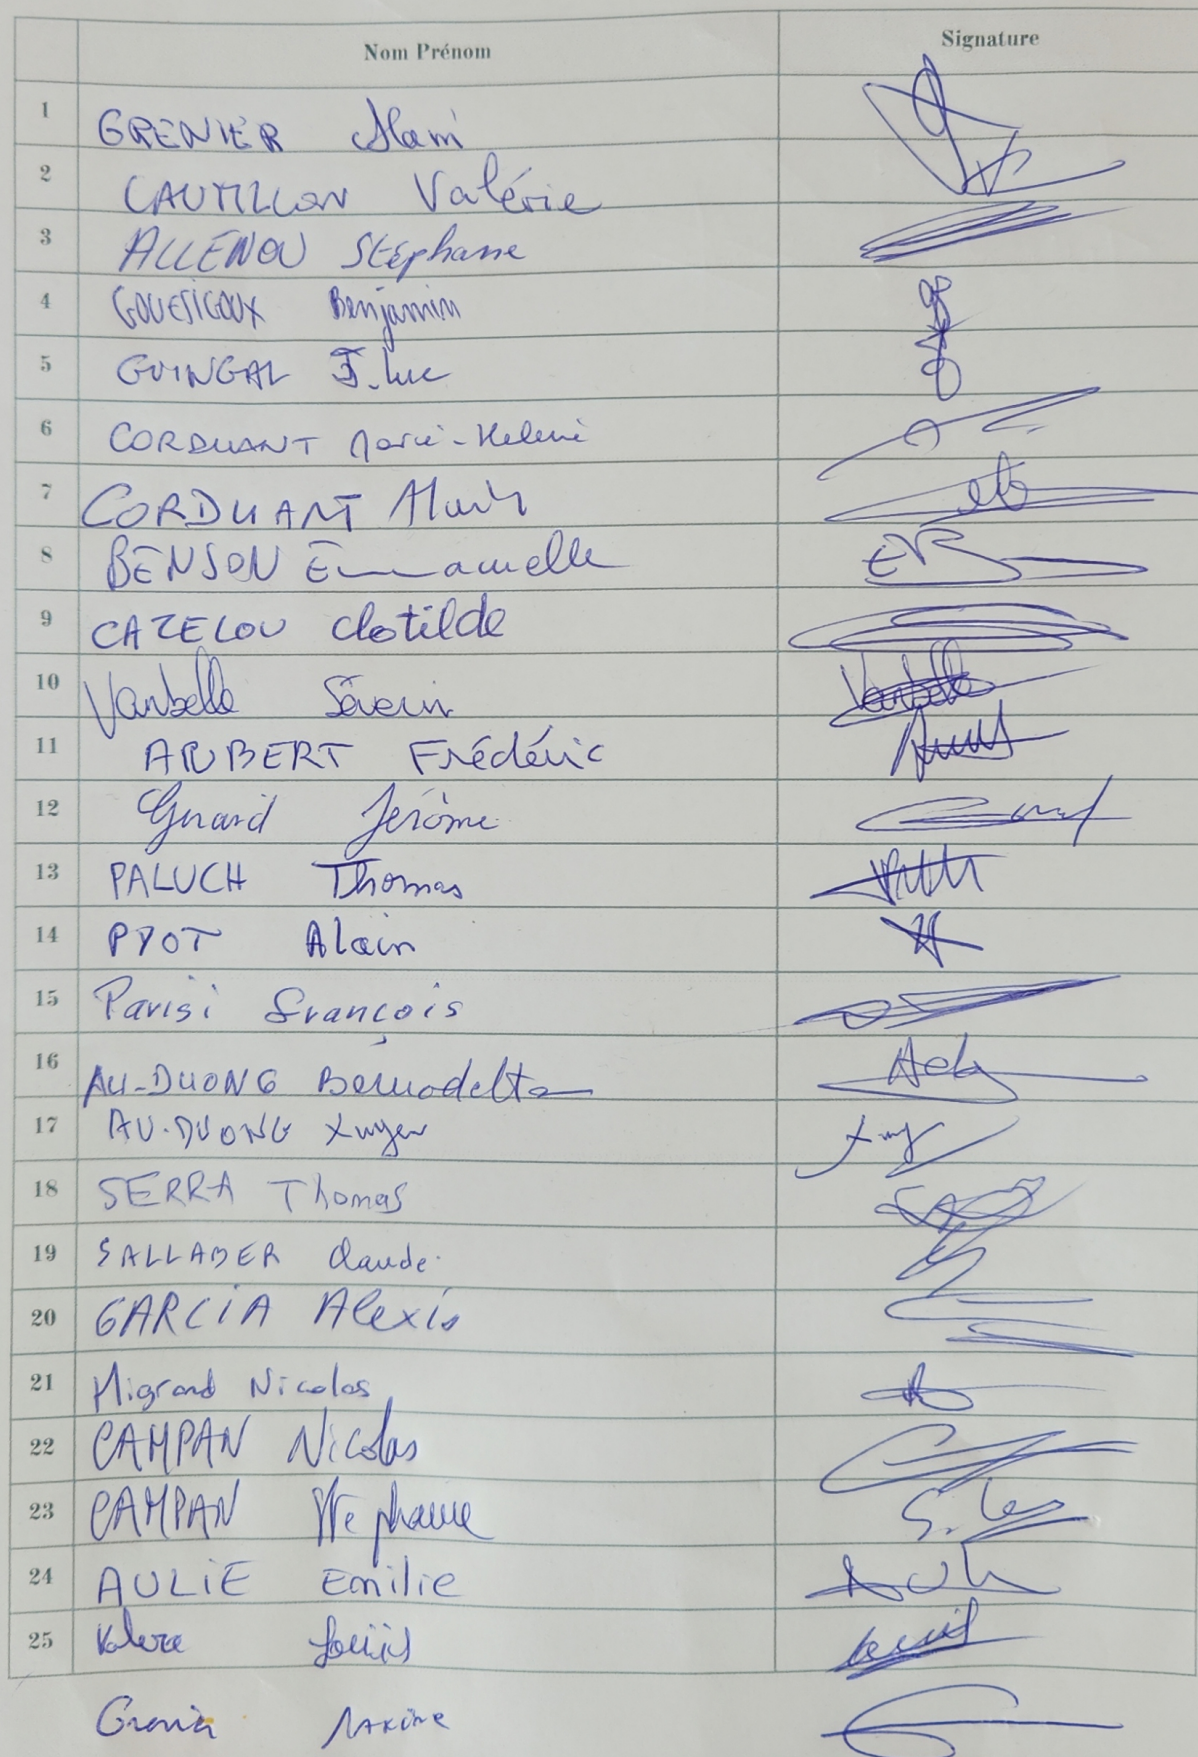 Nom Prénom Signature
1 GRENIER Alain
2 CAUTILLON Valérie
3 ALLENOU Stéphane
4 Benjamin
5 GUINGAL J.Luc
6 CORDUANT Marie-Helene
7 CORDUANT Alain
8 BENSON Emmanuelle
9 CAZELOU Clotilde
10 Vanbelle Séverin Vanbelle
11 AUBERT Frédéric
12 Jérôme
13 PALUCH Thomas
14 PYOT Alain
15 Parisi François
16 AU-DUONG Bernadette
17 AU-DUONG Xuyen
18 SERRA Thomas
19 SALLABER Claude
20 GARCIA Alexis
21 Migrand Nicolas
22 CAMPAN Nicolas
23 CAMPAN Stephanie
24 AULIE Emilie
25
Maxime